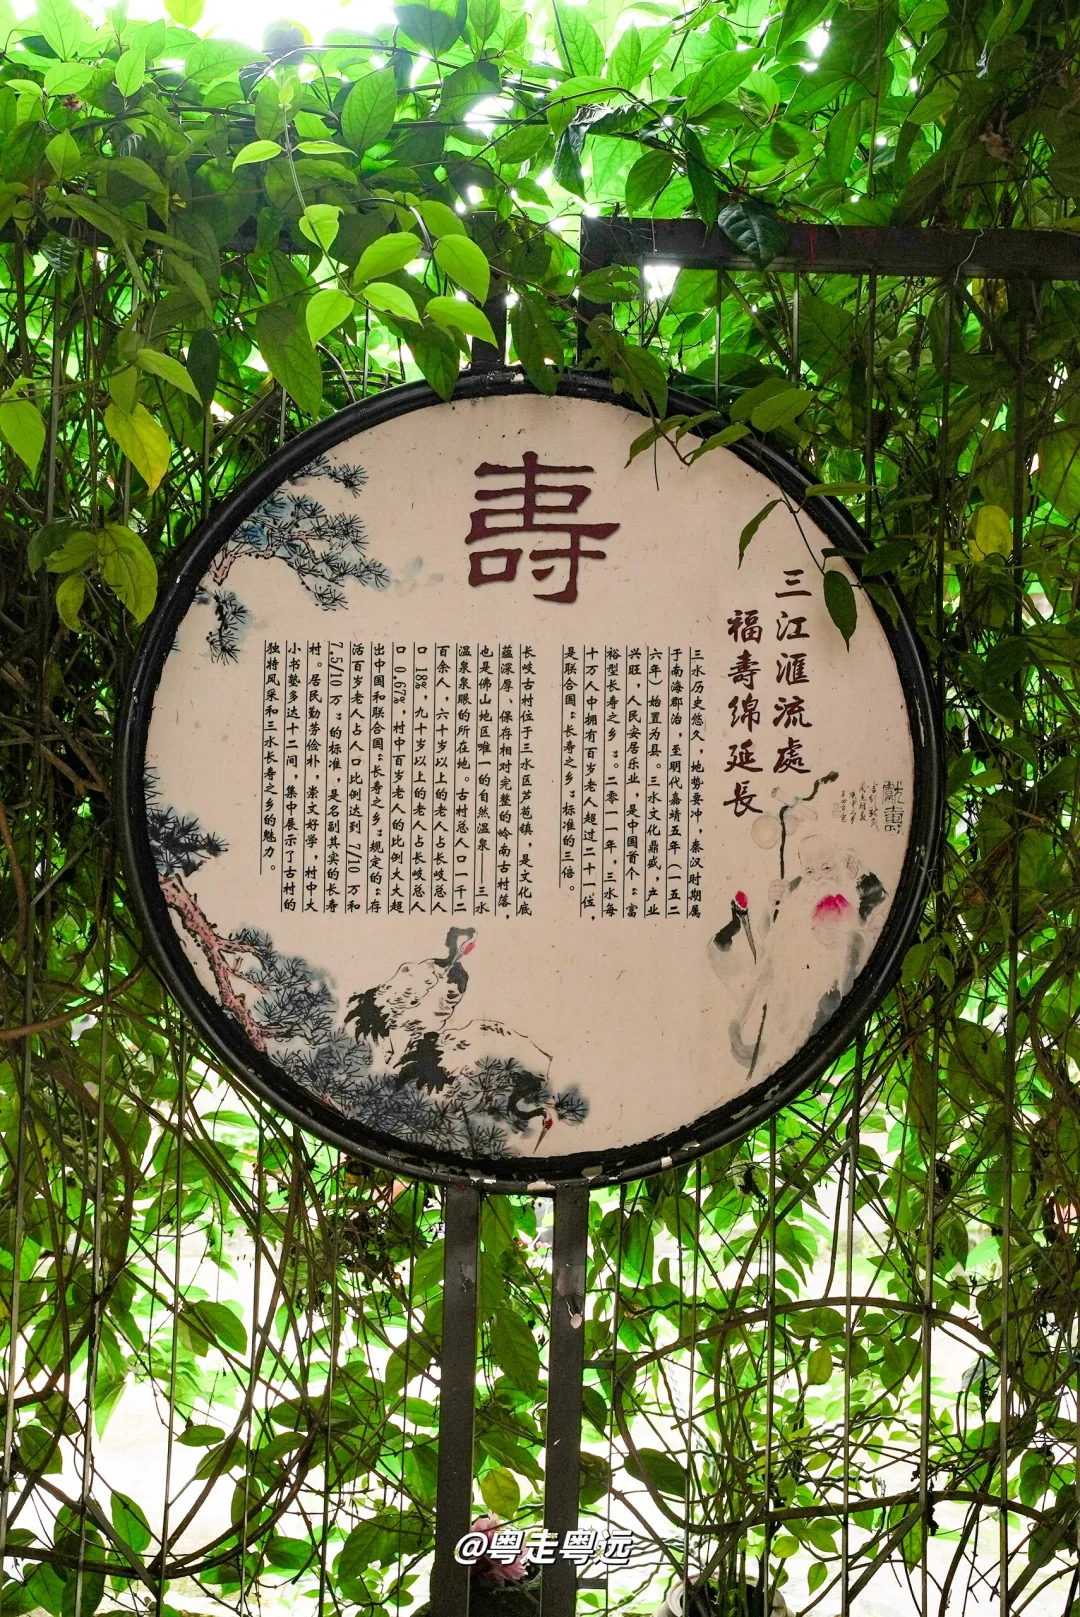 壽
三江滙流處
福壽绵延長
三水历史悠久，地势要冲，秦汉时期属
于南海郡治，至明代嘉靖五年（一五二
六年）始置为县。三水文化鼎盛，产业
兴旺，人民安居乐业，是中国首个“富
裕型长寿之乡”。二零一一年，三水每
十万人中拥有百岁老人超过二十一位，
是联合国“长寿之乡”标准的三倍。
长岐古村位于三水区芦苞镇，是文化底
蕴深厚、保存相对完整的岭南古村落，
也是佛山地区唯一的自然温泉——三水
温泉泉眼的所在地。古村总人口一千二
百余人，六十岁以上的老人占长岐总人
口 18%，九十岁以上的老人占长岐总人
口 0.67%，村中百岁老人的比例大大超
出中国和联合国“长寿之乡”规定的“存
活百岁老人占人口比例达到 7/10 万和
7.5/10 万”的标准，是名副其实的长寿
村。居民勤劳俭朴，崇文好学，村中大
小书塾多达十二间，集中展示了古村的
独特风采和三水长寿之乡的魅力。
@粤走粤远